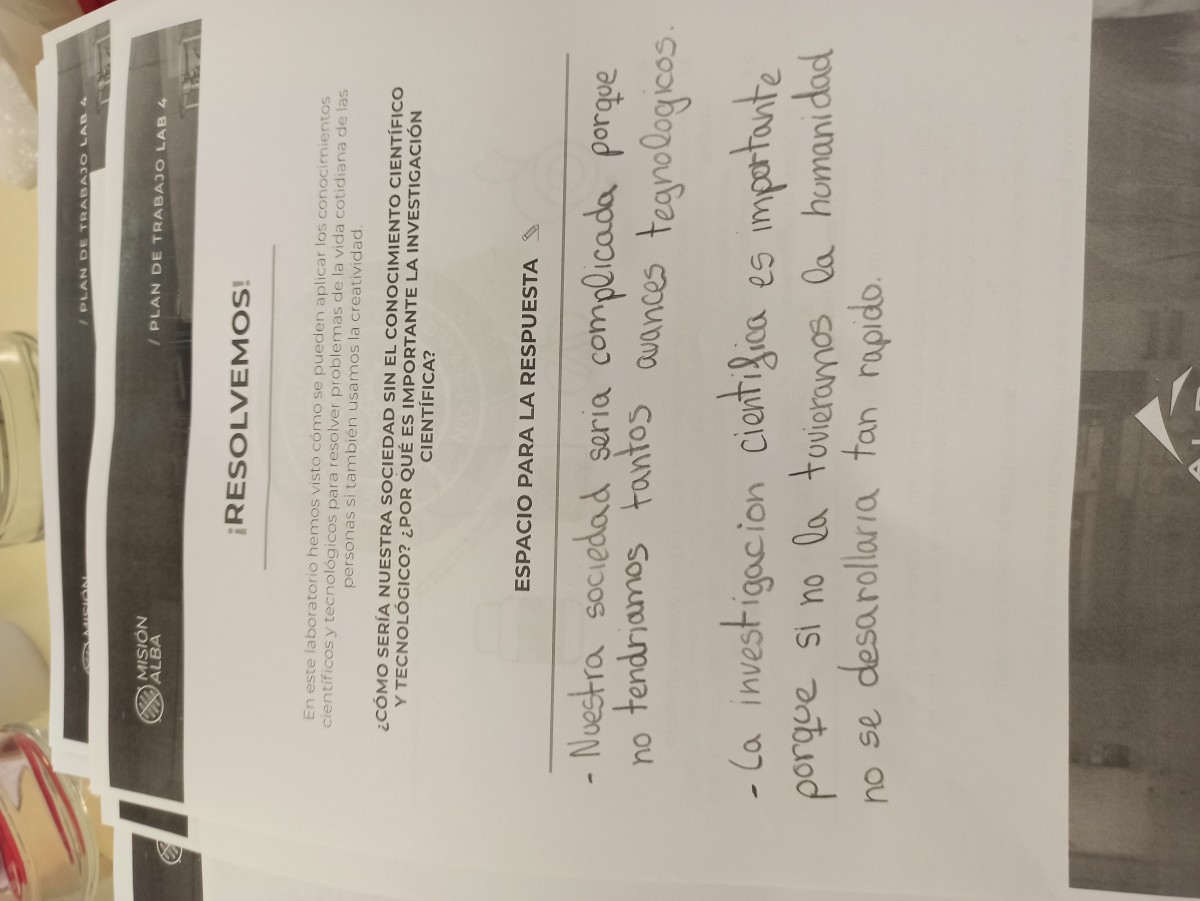 / PLAN DE TRABAJO LAB 4
MISIÓN
MISIÓN
ALBA
/ PLAN DE TRABAJO LAB 4
¡RESOLVEMOS!
En este laboratorio hemos visto cómo se pueden aplicar los conocimientos
científicos y tecnológicos para resolver problemas de la vida cotidiana de las
personas si también usamos la creatividad.
¿CÓMO SERÍA NUESTRA SOCIEDAD SIN EL CONOCIMIENTO CIENTÍFICO
Y TECNOLÓGICO? ¿POR QUÉ ES IMPORTANTE LA INVESTIGACIÓN
CIENTÍFICA?
ESPACIO PARA LA RESPUESTA
- Nuestra sociedad seria complicada porque
no tendriamos tantos avances tegnologicos.
- La investigacion cientifica es importante
porque si no la tuvieramos la humanidad
no se desarollaria tan rapido.